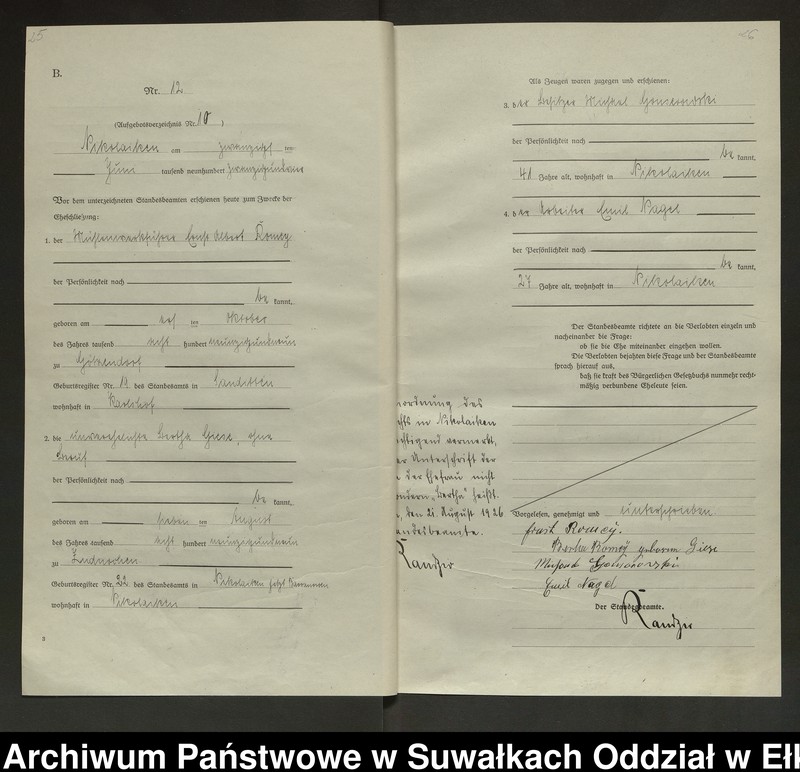 25
B.
Nr. 12
(Aufgebotsverzeichnis Nr. 10)
Nikolaiken am zwanzigst ten
Juni tausend neunhundert
Vor dem unterzeichneten Standesbeamten erschienen heute zum Zwecke der
Eheschließung:
1. der Mühlenwerkführer Ernst Albert Romey
der Persönlichkeit nach
be kannt,
geboren am ten Oktober
des Jahres tausend acht hundert neunzigundneun
zu
Geburtsregister Nr. des Standesamts in Sanditten
wohnhaft in Karlshof
2. die unverehelichte Bertha Giese, ohne
Beruf
der Persönlichkeit nach
be kannt,
geboren am sieben ten August
des Jahres tausend acht hundert neunzigundneun
zu
Geburtsregister Nr. 22 des Standesamts in Nikolaiken jetzt
wohnhaft in Nikolaiken
3
nordnung des
chts in Nikolaiken
chtigend vermerkt,
er Unterschrift der
der Ehefrau nicht
ondern „Bertha" heißt.
den 21. August 1926
andesbeamte.
Randzer
26
Als Zeugen waren zugegen und erschienen:
3. der Besitzer Michael
der Persönlichkeit nach
be kannt,
41 Jahre alt, wohnhaft in Nikolaiken
4. der Arbeiter Emil Nagel
der Persönlichkeit nach
be kannt,
27 Jahre alt, wohnhaft in Nikolaiken
Der Standesbeamte richtete an die Verlobten einzeln und
nacheinander die Frage:
ob sie die Ehe miteinander eingehen wollen.
Die Verlobten bejahten diese Frage und der Standesbeamte
sprach hierauf aus,
daß sie kraft des Bürgerlichen Gesetzbuchs nunmehr recht-
mäßig verbundene Eheleute seien.
Vorgelesen, genehmigt und unterschrieben
Ernst Romey.
Berta Romey geborene Giese
Emil Nagel
Der Standesbeamte.
Randzer
Archiwum Państwowe w Suwałkach Oddział w Ełk